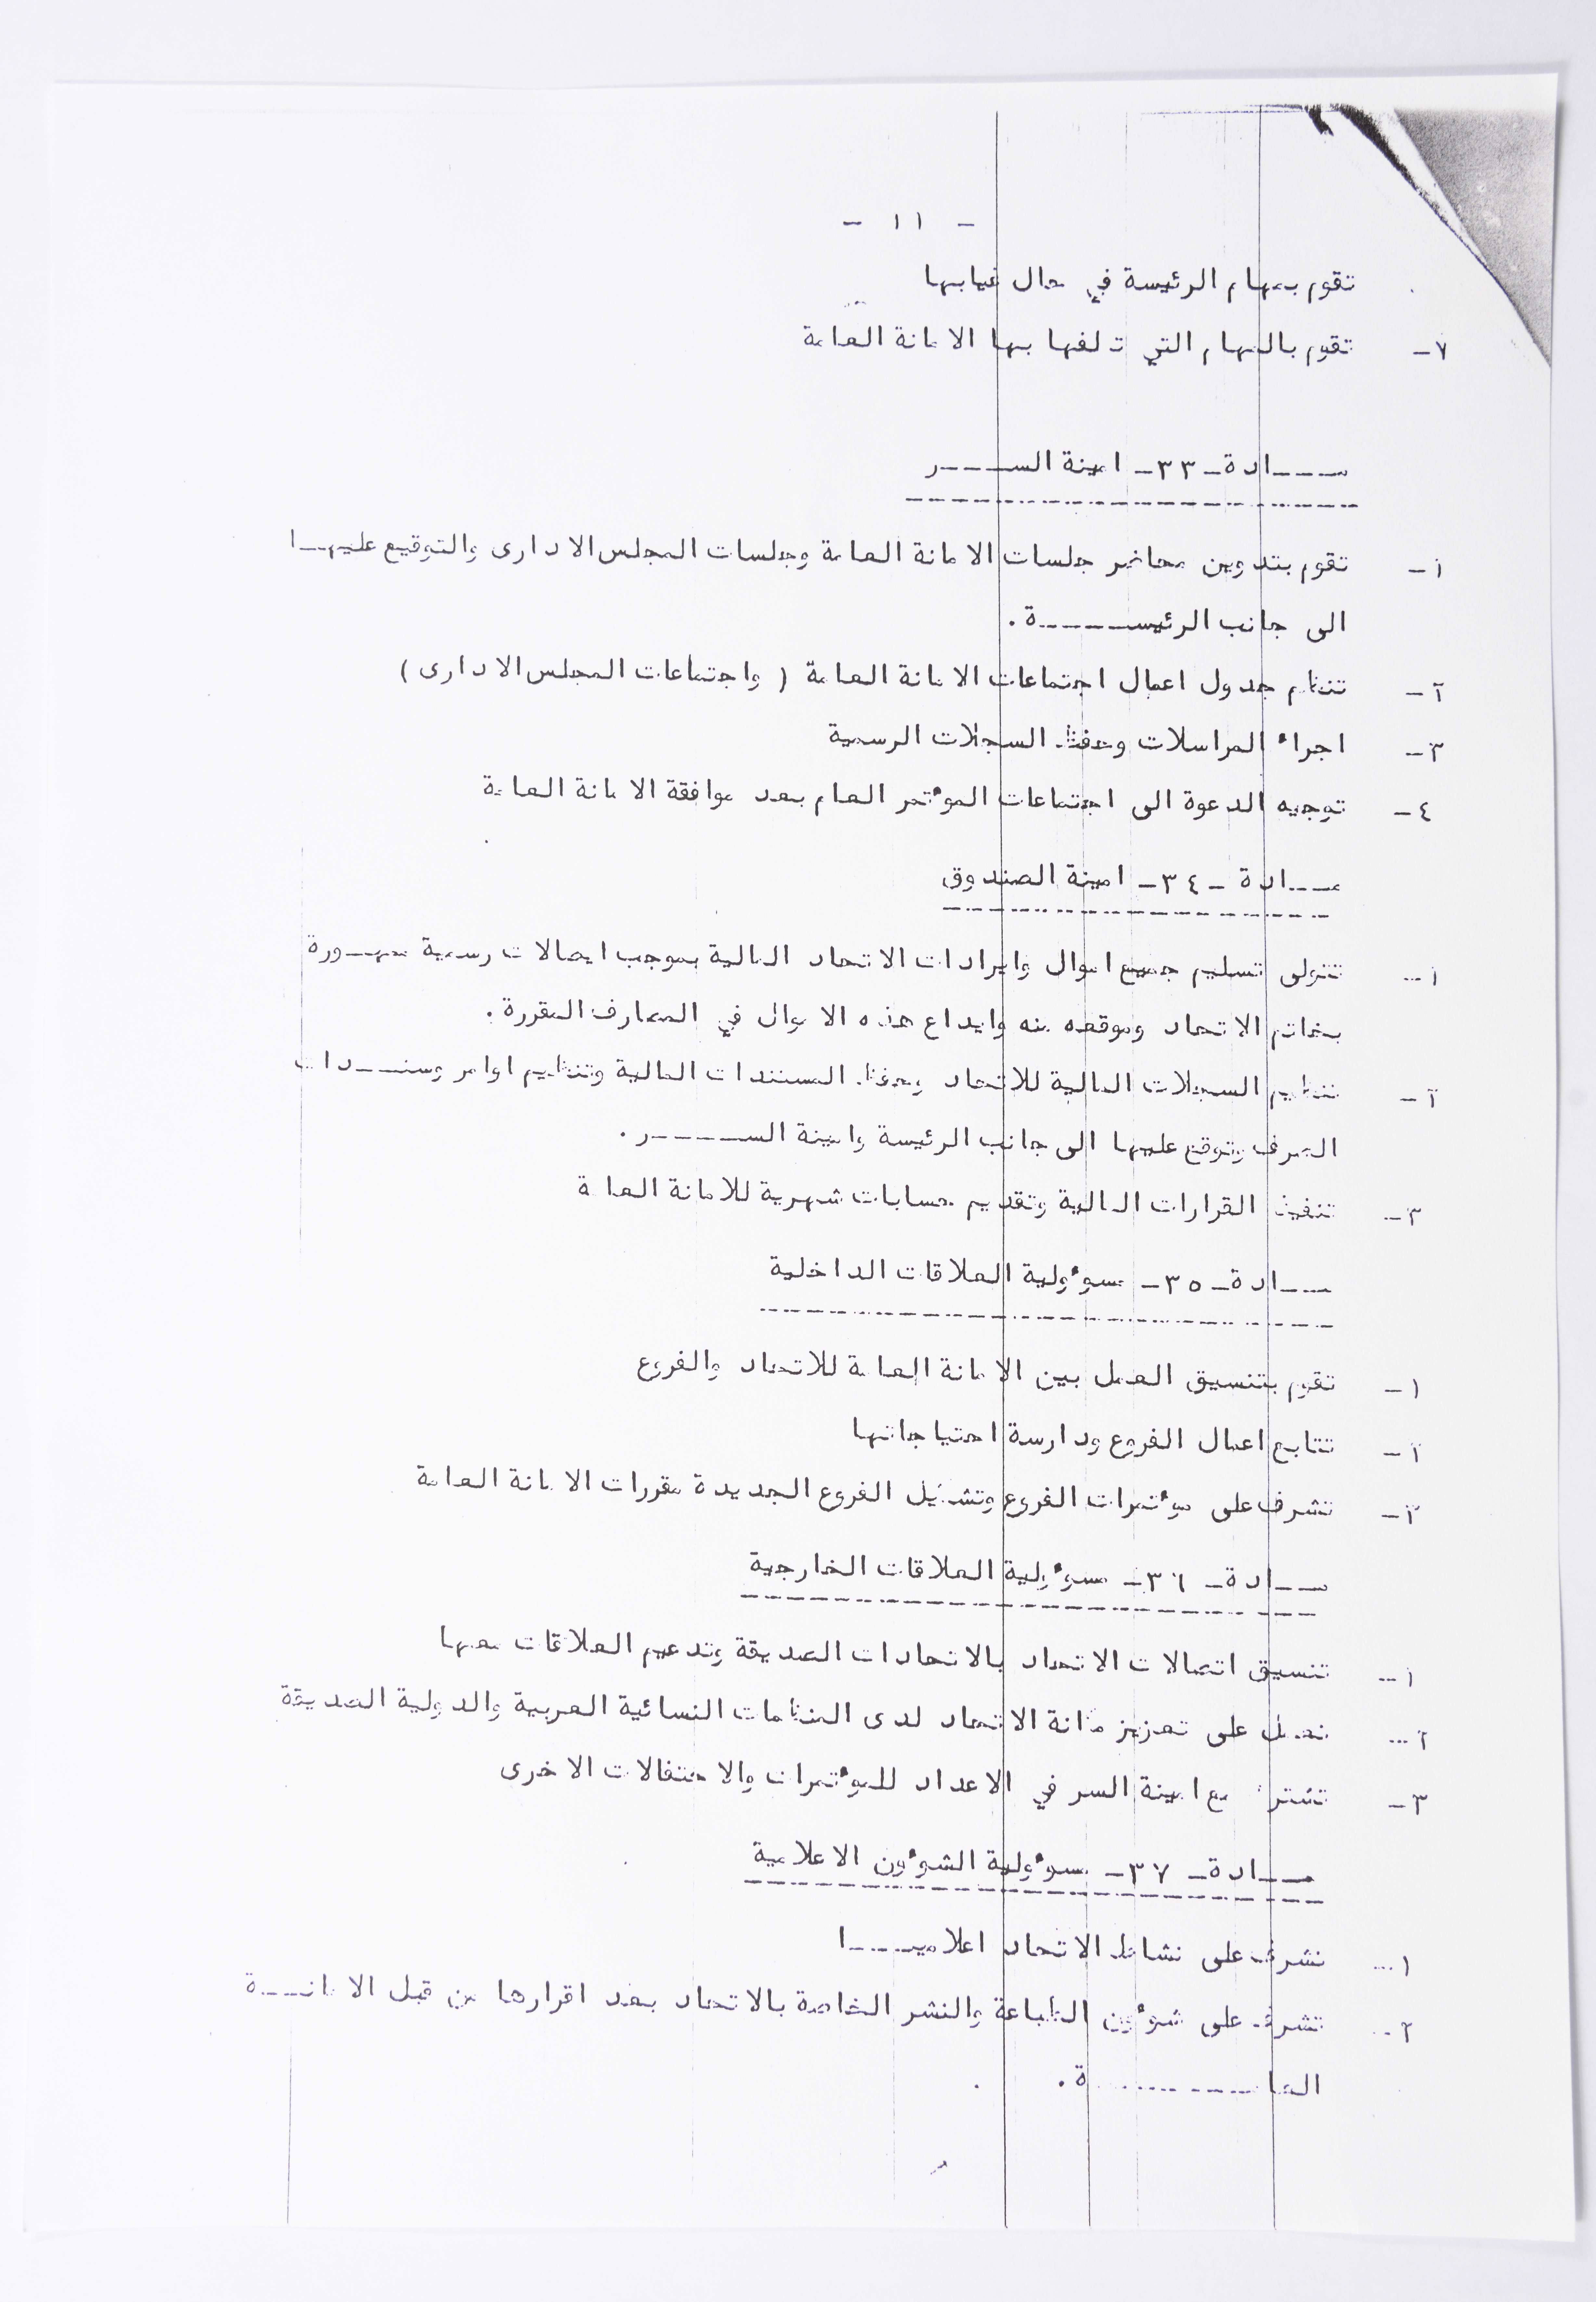 - ١١ -
تقوم بمهام الرئيسة في حال غيابها
٧- تقوم بالمهام التي تكلفها بها الامانة العامة
مـــادة - ٣٣ - امينة الســـر
١- تقوم بتدوين محاضر جلسات الامانة العامة وجلسات المجلس الادارى والتوقيع عليهــا
الى جانب الرئيســـــة .
٢- تنظم جدول اعمال اجتماعات الامانة العامة ( واجتماعات المجلس الادارى )
٣- اجراء المراسلات وحفظ السجلات الرسمية
٤- توجيه الدعوة الى اجتماعات المؤتمر العام بعد موافقة الامانة العامة
مـــادة - ٣٤ - امينة الصندوق
١- تتولى تسليم جميع اموال وايرادات الاتحاد المالية بموجب ايصالات رسمية ممهــورة
بخاتم الاتحاد وموقعه منه وايداع هذه الاموال في المصارف المقررة .
٢- تنظيم السجلات المالية للاتحاد وحفظ المستندات المالية وتنظيم اوامر وسنــدات
الصرف وتوقع عليها الى جانب الرئيسة وامينة الســـــر .
٣- تنفيذ القرارات المالية وتقديم حسابات شهرية للامانة العامة
مـــادة - ٣٥ - مسؤولية العلاقات الداخلية
١- تقوم بتنسيق العمل بين الامانة العامة للاتحاد والفروع
٢- تتابع اعمال الفروع ودارسة احتياجاتها
٣- تشرف على مؤتمرات الفروع وتشكيل الفروع الجديدة مقررات الامانة العامة
مـــادة - ٣٦ - مسؤولية العلاقات الخارجية
١- تنسيق اتصالات الاتحاد بالاتحادات الصديقة وتدعيم العلاقات معها
٢- تعمل على تعزيز مكانة الاتحاد لدى المنظمات النسائية العربية والدولية الصديقة
٣- تشترك مع امينة السر في الاعداد للمؤتمرات والاحتفالات الاخرى
مـــادة - ٣٧ - مسؤولية الشؤون الاعلامية
١- تشرف على نشاط الاتحاد اعلاميـــا
٢- تشرف على شؤون الطباعة والنشر الخاصة بالاتحاد بعد اقرارها من قبل الامانــة
العامـــــــة .